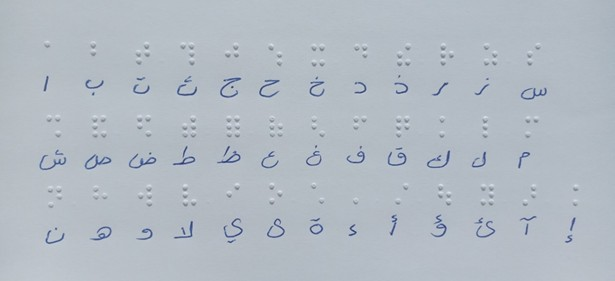 ا ب ت ث ج ح خ د ذ ر ز س
ش ص ض ط ظ ع غ ف ق ك ل م
ن ه و لا ي ى ة ء أ ؤ ئ آ إ